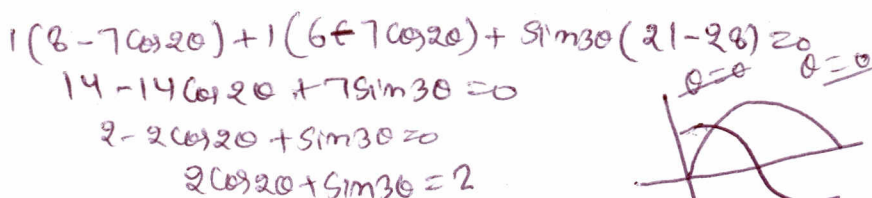 1(8-7cos2θ)+1(6-7cos2θ)+sin3θ(21-28)=0
θ=0
θ=0
14-14cos2θ+7sin3θ=0
2-2cos2θ+sin3θ=0
2cos2θ+sin3θ=2